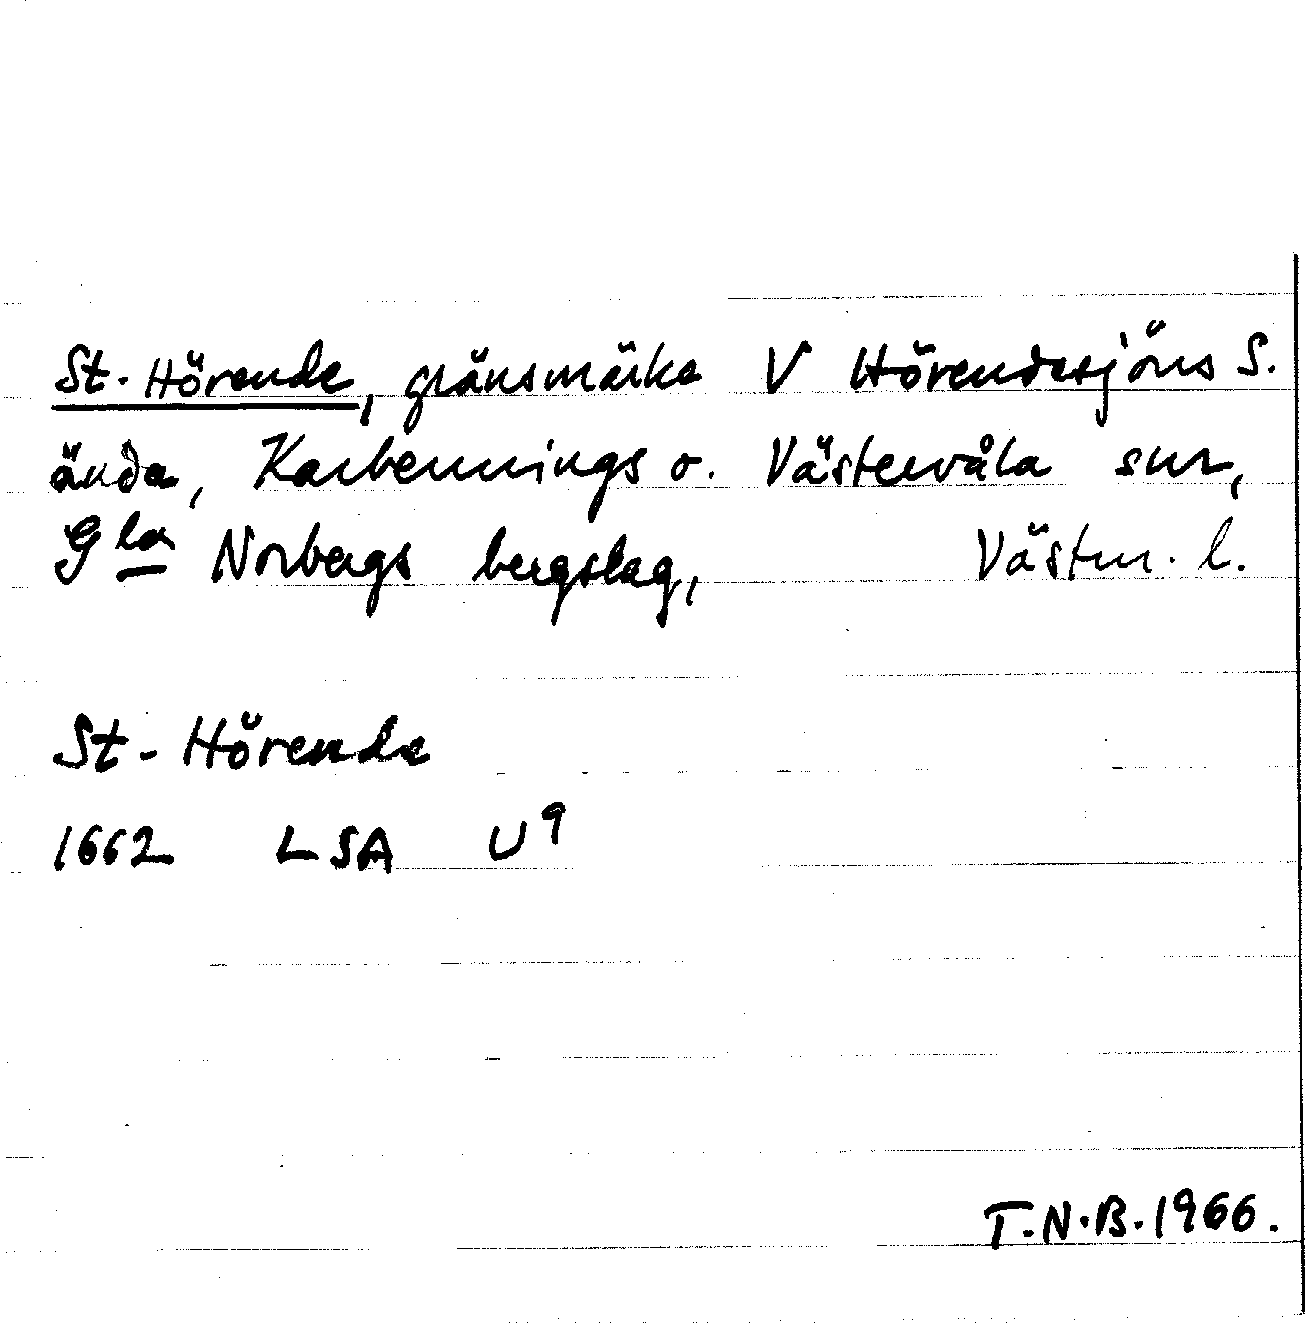 St. Hörende, gränsmärke V Hörendesjöns S.
ända, Karbennings o. Västervåla snr,
Gla Norbergs bergslag, Västm. l.
St - Hörende
1662 LSA U9
T.N.B.1966.